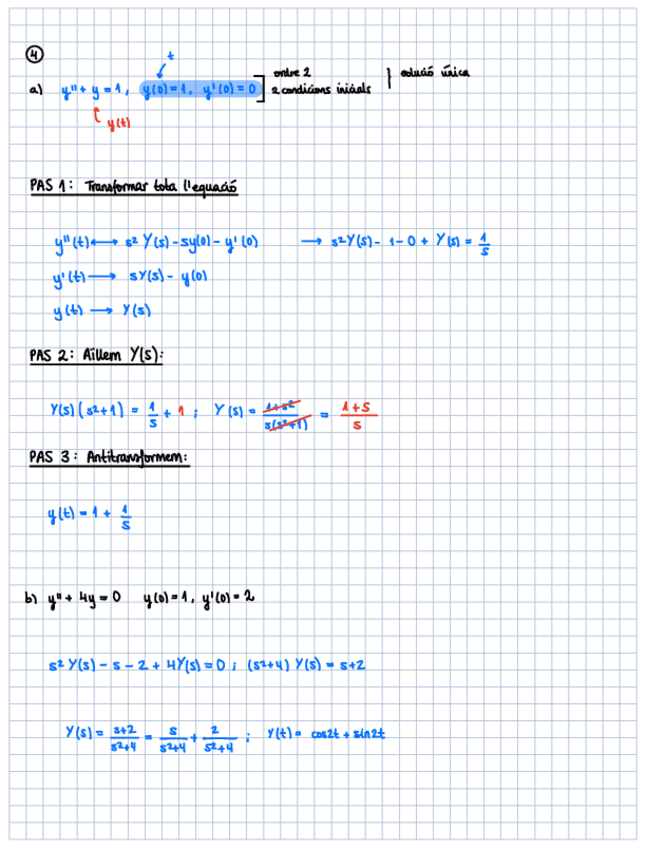 4
t
a) y'' + y = 1, y(0) = 1, y'(0) = 0 ] ordre 2 | solució única
2 condicions inicials
y(t)
PAS 1: Transformar tota l'equació
y''(t) ⟷ s² Y(s) - sy(0) - y'(0) ⟶ s²Y(s) - 1 - 0 + Y(s) = 1/s
y'(t) ⟶ sY(s) - y(0)
y(t) ⟶ Y(s)
PAS 2: Aïllem Y(s):
Y(s)(s²+1) = 1/s + 1 ; Y(s) = 1+s²/s(s²+1) = 1+s/s
PAS 3: Antitransformem:
y(t) = 1 + 1/s
b) y'' + 4y = 0 y(0) = 1, y'(0) = 2
s² Y(s) - s - 2 + 4Y(s) = 0 ; (s²+4) Y(s) = s+2
Y(s) = s+2/s²+4 = s/s²+4 + 2/s²+4 ; Y(t) = cos2t + sin2t